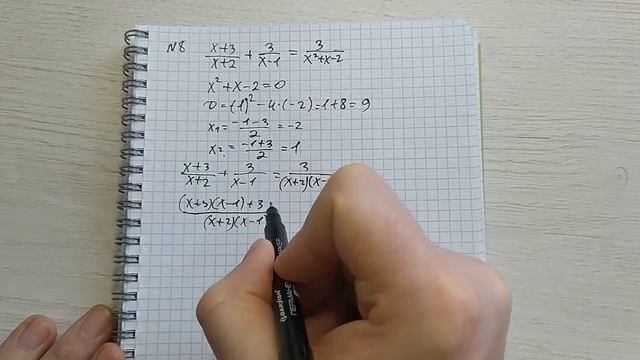 N8 (x+3)/(x+2) + 3/(x-1) = 3/(x²+x-2)
x²+x-2=0
D=(1)²-4·(-2)=1+8=9
x₁=(-1-3)/2=-2
x₂=(-1+3)/2=1
(x+3)/(x+2) + 3/(x-1) = 3/((x+2)(x-
((x+3)(x-1)+3)/((x+2)(x-1)